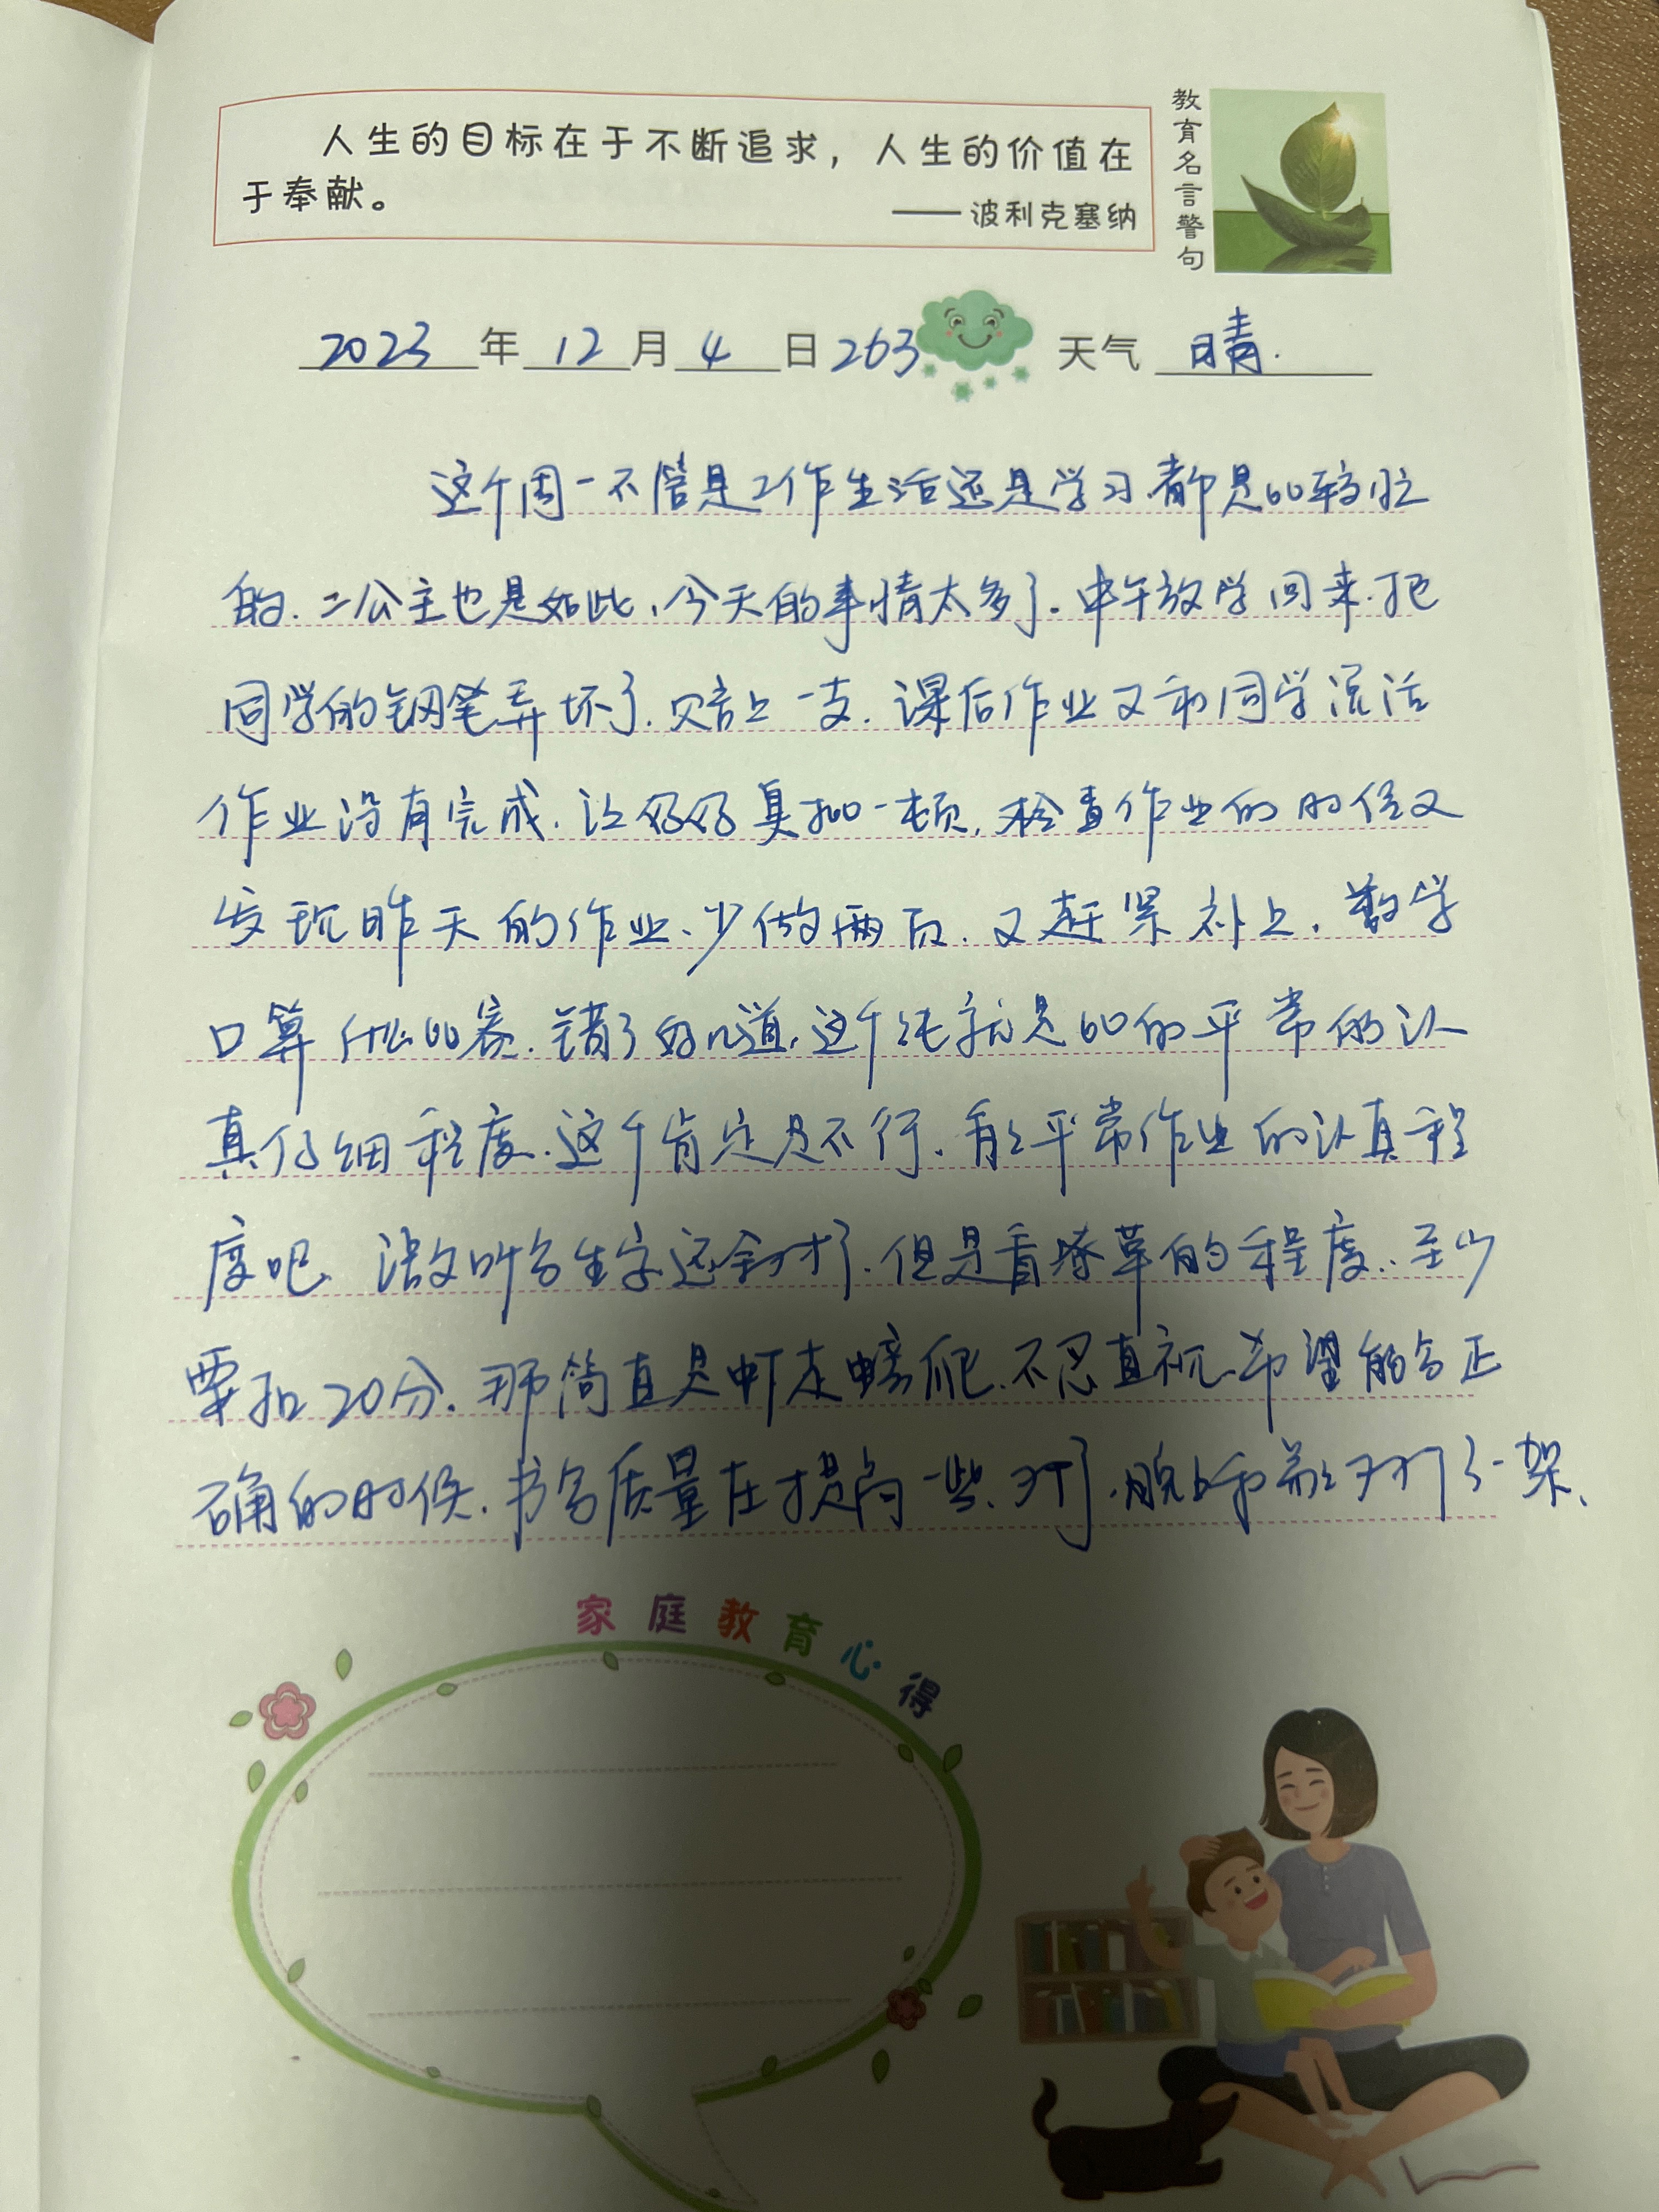 人生的目标在于不断追求，人生的价值在
于奉献。
——波利克塞纳
教育名言警句
2023年12月4日263 天气晴.
这个周一不管是工作生活还是学习.都是比较忙
的.二公主也是如此、今天的事情太多了.中午放学回来.把
同学的钢笔弄坏了.赔上一支.课后作业又和同学说话
作业没有完成.让好好臭一顿.检查作业的时候又
发现昨天的作业、少做两页.又赶紧补上.数学
口算什么内容.错了好几道.这个就是的平常的认
真仔细程度.这个肯定是不行.看平常作业的认真程
度吧.语文听写生字还全对了.但是看潦草的程度..至少
要扣20分.那简直是虾走螃爬.不忍直视.希望能写正
确的时候.书写质量在提高一些、对了.打了一架、
家庭教育心得